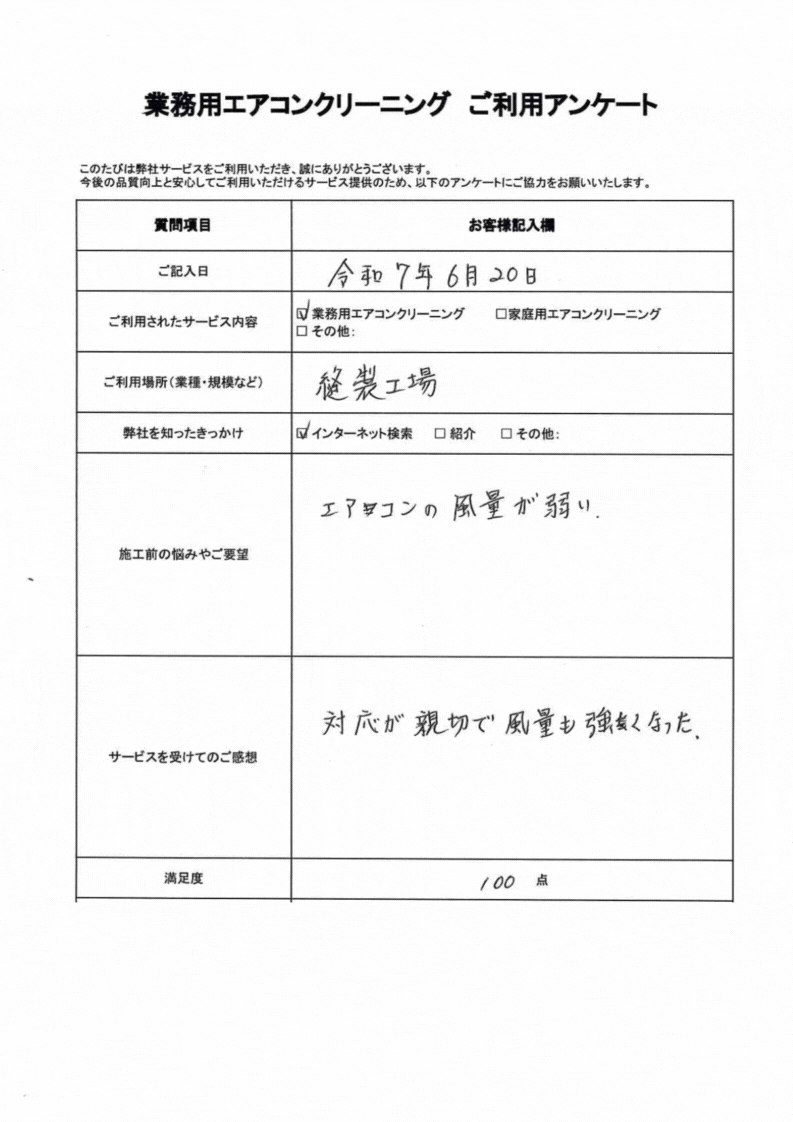 業務用エアコンクリーニング ご利用アンケート
このたびは弊社サービスをご利用いただき、誠にありがとうございます。
今後の品質向上と安心してご利用いただけるサービス提供のため、以下のアンケートにご協力をお願いいたします。
質問項目 お客様記入欄
ご記入日 令和7年6月20日
ご利用されたサービス内容 ☑業務用エアコンクリーニング □家庭用エアコンクリーニング
□その他:
ご利用場所(業種・規模など) 縫製工場
弊社を知ったきっかけ ☑インターネット検索 □紹介 □その他:
施工前の悩みやご要望 エアコンの風量が弱い.
サービスを受けてのご感想 対応が親切で風量も強くなった.
満足度 100 点